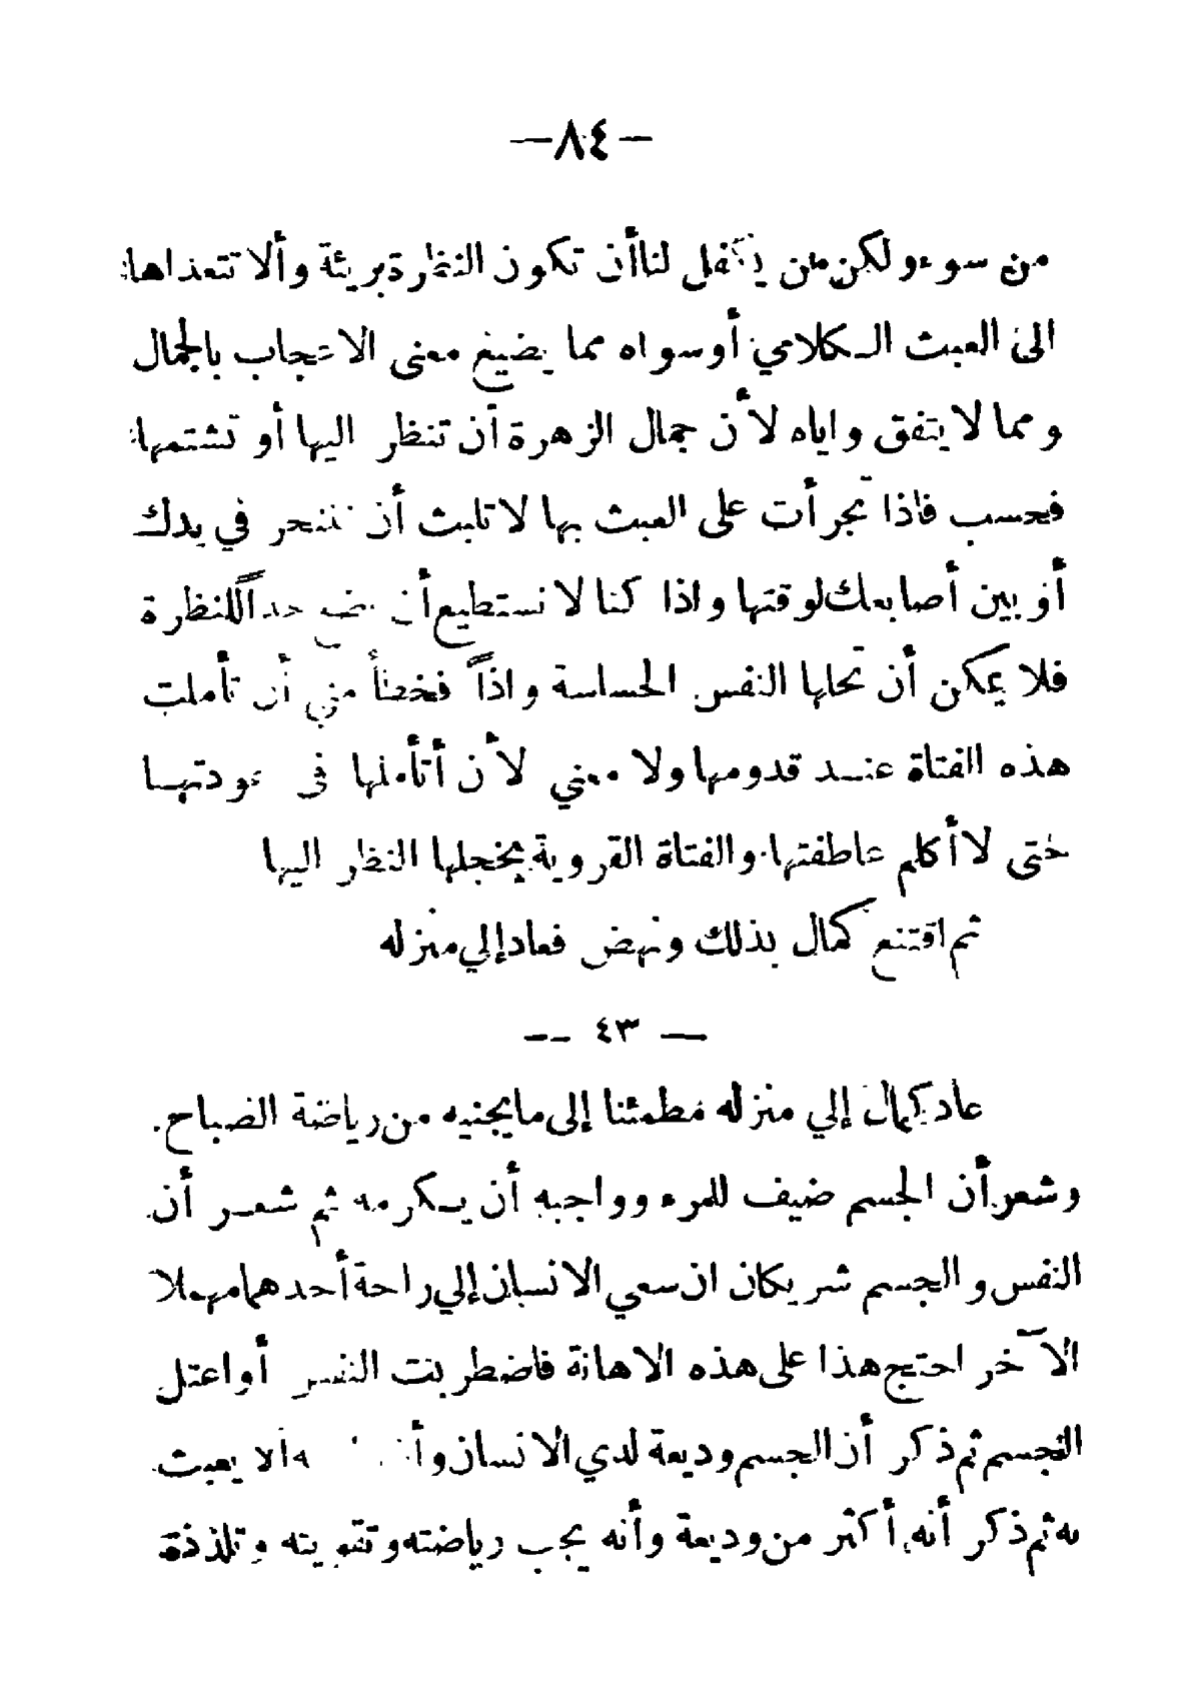 —٨٤—
من سوء ولكن من يكفل لنا أن تكون النظرة بريئة وألا تتعداها
الى العبث الكلامي أو سواه مما يضيع معنى الاعجاب بالجمال
ومما لا يتفق واياه لأن جمال الزهرة أن تنظر اليها أو تشتمها
فحسب فاذا تجرأت على العبث بها لا تلبث أن تنتحر في يدك
أو بين أصابعك لوقتها واذا كنا لا نستطيع أن نضع حداً للنظرة
فلا يمكن أن تحلها النفس الحساسة واذاً فخطأ مني أن تأملت
هذه الفتاة عند قدومها ولا معني لأن أتأملها فى عودتها
حتى لا أكلم عاطفتها والفتاة القروية يخجلها النظر اليها
ثم اقتنع كمال بذلك ونهض فعاد إلي منزله
— ٤٣ --
عاد كمال إلي منزله مطمئنا إلى ما يجنيه من رياضة الصباح.
وشعر أن الجسم ضيف للمرء وواجبه أن يكرمه ثم شعر أن
النفس والجسم شريكان ان سعي الانسان إلي راحة أحدهما مهملا
الآخر احتج هذا على هذه الاهانة فاضطربت النفس أو اعتل
الجسم ثم ذكر أن الجسم وديعة لدي الانسان وألا يعبث
به ثم ذكر أنه أكثر من وديعة وأنه يجب رياضته وتقويته وتلذذة